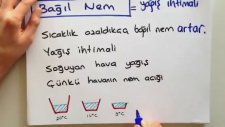 Bağıl Nem = yağış ihtimali
Sıcaklık azaldıkça bağıl nem artar.
Yağış ihtimali
Soğuyan hava yağış
Çünkü havanın nem açığı